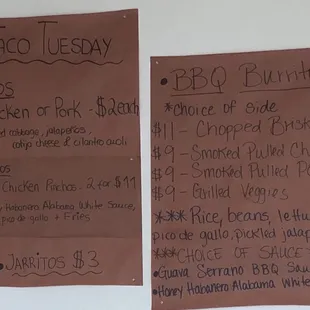 TACO TUESDAY
OS
cken or Pork - $2 each
d cabbage, jalapeños,
cotija cheese & cilantro aioli
os
Chicken Pinchos - 2 for $11
y Habanero Alabama White Sauce,
pico de gallo + Fries
• JARRITOS $3
• BBQ Burrit
*choice of side
$11 - Chopped Brisk
$9 - Smoked Pulled Ch
$9 - Smoked Pulled Po
$9 - Grilled Veggies
*** Rice, beans, lettu
pico de gallo, pickled jalap
*CHOICE OF SAUCE*
• Guava Serrano BBQ Sau
• Honey Habanero Alabama White